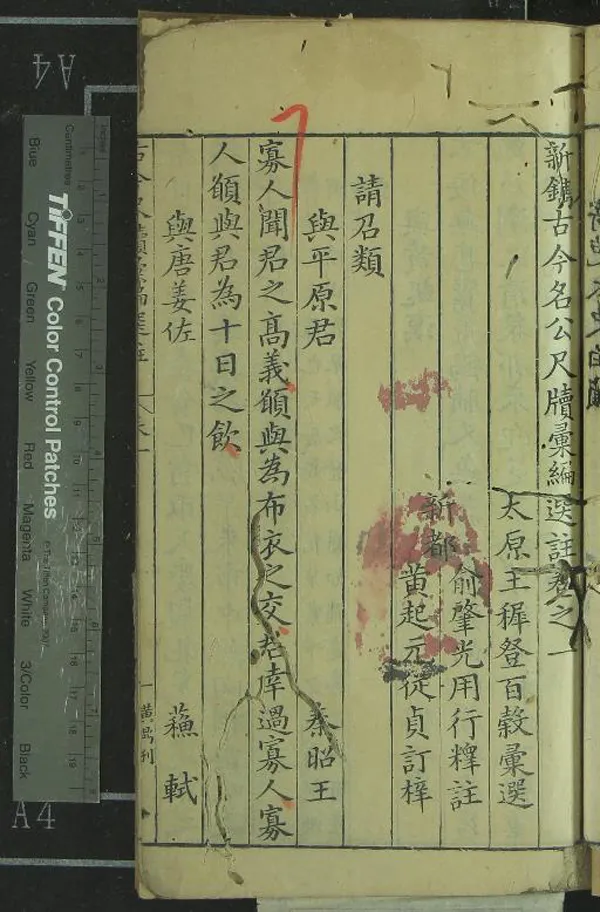 新鐫古今名公尺牘彙編選註卷之一
太原王穉登百穀彙選
俞肇光用行釋註
新都
黄起元從貞訂梓
請召類
與平原君
秦昭王
寡人聞君之高義願與為布衣之交君幸過寡人寡
人願與君為十日之飲
與唐姜佐
蘓軾
一
黄 刊
A4
A4
Centimetres
Inches
TIFFEN Color Control Patches
Blue
Cyan
Green
Yellow
Red
Magenta
White
3/Color
Black